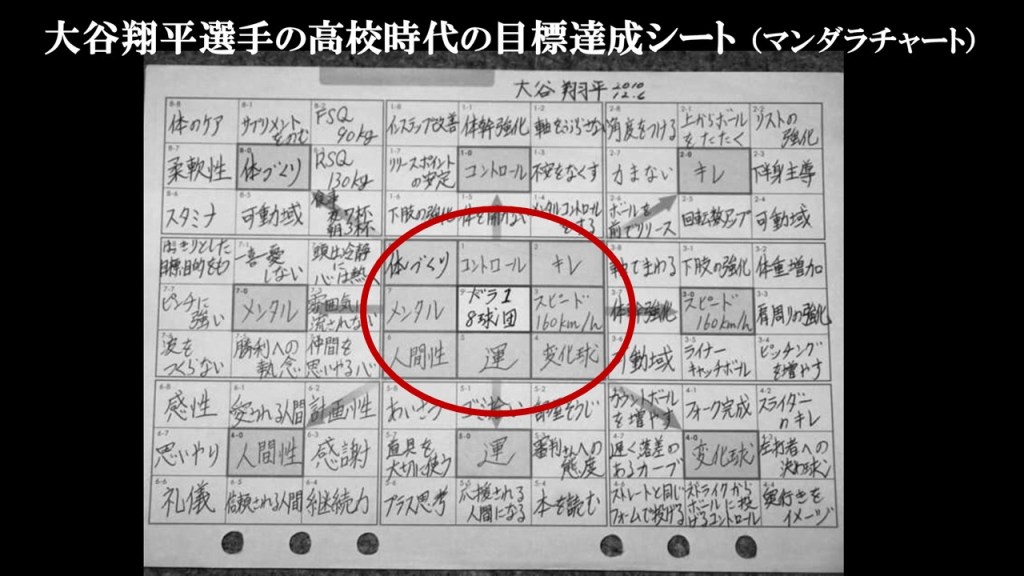 大谷翔平選手の高校時代の目標達成シート（マンダラチャート）
大谷 翔平 2010 12.6
体のケア サプリメントをのむ FSQ 90kg インステップ改善 体幹強化 軸をぶらさない 角度をつける 上からボールをたたく リストの強化
柔軟性 体づくり RSQ 130kg リリースポイントの安定 コントロール 不安をなくす 力まない キレ 下半身主導
スタミナ 可動域 食事 夜7杯 朝3杯 下肢の強化 体を開かない メンタルコントロールをする ボールを前でリリース 回転数アップ 可動域
はっきりとした目標目的をもつ 一喜一憂しない 頭は冷静に心は熱く 体づくり コントロール キレ 軸でまわる 下肢の強化 体重増加
ピンチに強い メンタル 雰囲気に流されない メンタル ドラ1 8球団 スピード 160km/h 体幹強化 スピード 160km/h 肩周りの強化
波をつくらない 勝利への執念 仲間を思いやる心 人間性 運 変化球 可動域 ライナーキャッチボール ピッチングを増やす
感性 愛される人間 計画性 あいさつ ゴミ拾い 部屋そうじ カウントボールを増やす フォーク完成 スライダーのキレ
思いやり 人間性 感謝 道具を大切に使う 運 審判さんへの態度 遅く落差のあるカーブ 変化球 左打者への決め球
礼儀 信頼される人間 継続力 プラス思考 応援される人間になる 本を読む ストレートと同じフォームで投げる ストライクからボールに投げるコントロール 奥行きをイメージ